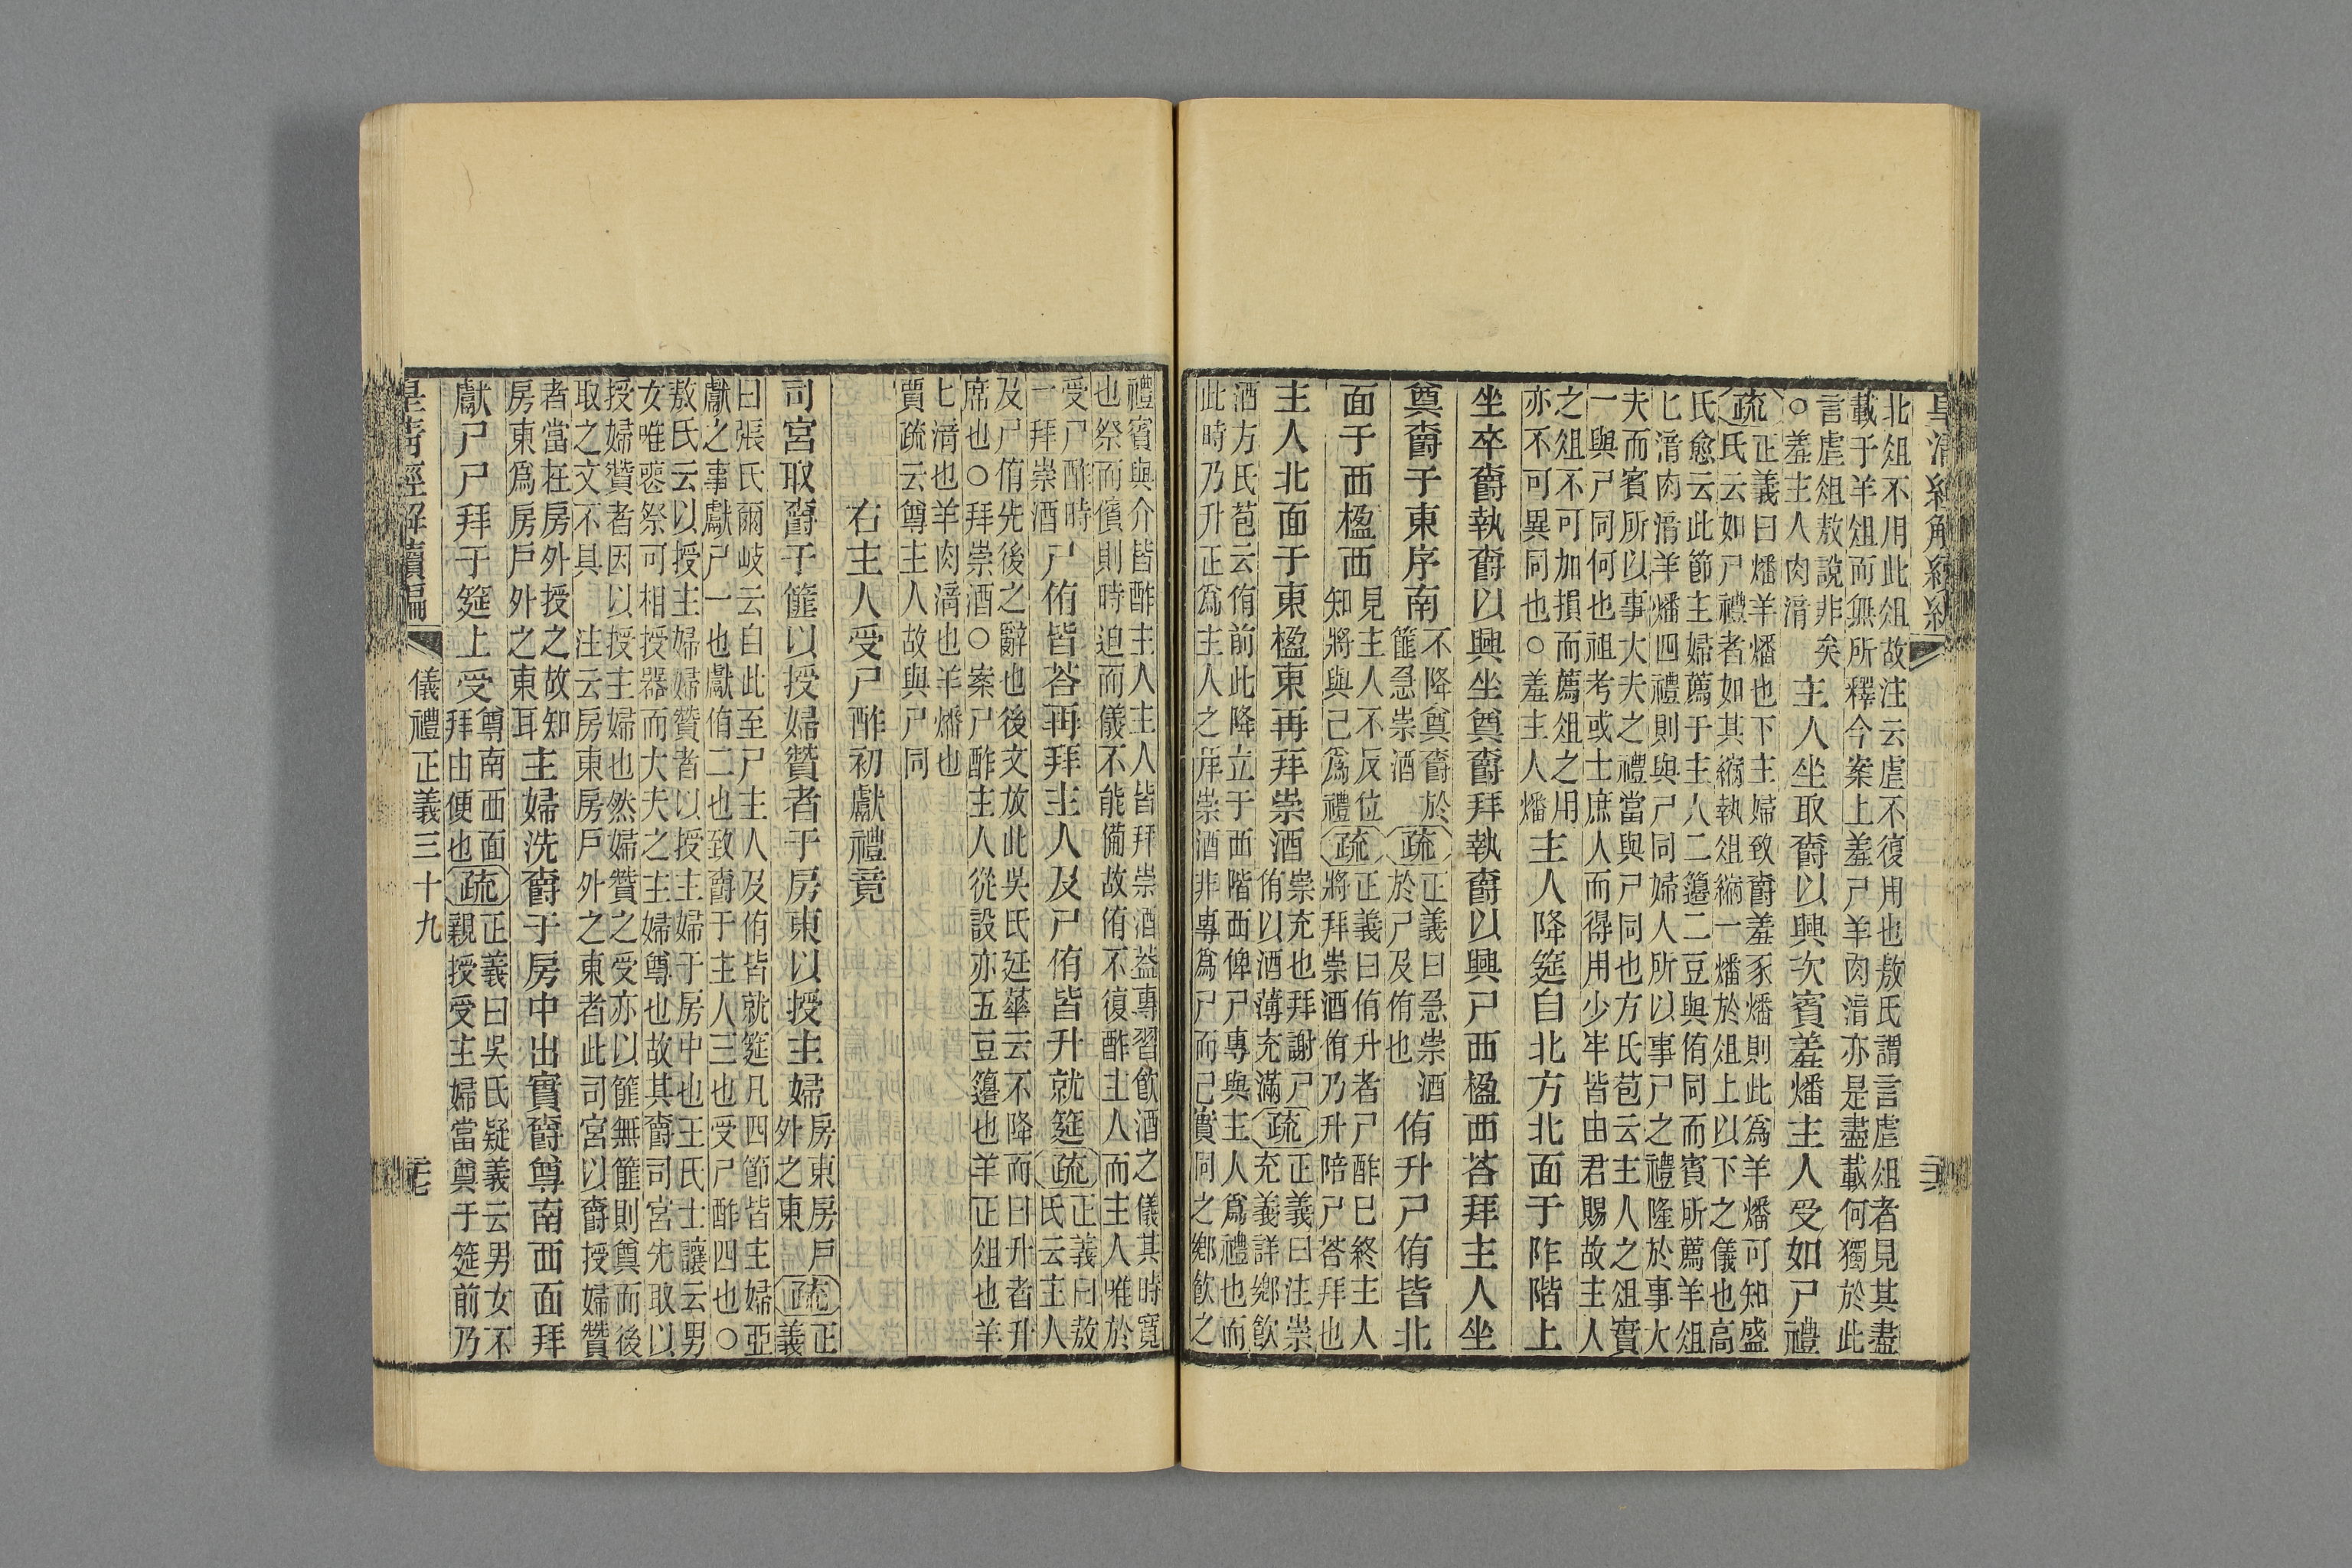 北俎不用此俎故注云虛不復用也敖氏謂言虛俎者見其盡
載于羊俎而無所釋今案上羞尸羊肉湆亦是盡載何獨於此
言虛俎敖說非矣
○羞主人肉湆
主人坐取爵以興次賓羞燔主人受如尸禮
疏
正義曰燔羊燔也下主婦致爵羞豕燔則此爲羊燔可知盛
氏云如尸禮者如其縮執俎縮一燔於俎上以下之儀也高
氏愈云此節主婦薦于主人二籩二豆與侑同而賓所薦羊俎
匕湆肉湆羊燔四禮則與尸同婦人所以事尸之禮隆於事大
夫而賓所以事大夫之禮當與尸同也方氏苞云主人之俎實
一與尸同何也祖考或士庶人而得用少牢皆由君賜故主人
之俎不可加損而薦俎之用
亦不可異同也○羞主人燔
主人降筵自北方北面于阼階上
坐卒爵執爵以興坐奠爵拜執爵以興尸西楹西荅拜主人坐
奠爵于東序南
不降奠爵於
篚急崇酒
疏
正義曰急崇酒
於尸及侑也
侑升尸侑皆北
面于西楹西
見主人不反位
知將與己爲禮
疏
正義曰侑升者尸酢已終主人
將拜崇酒侑乃升陪尸荅拜也
主人北面于東楹東再拜崇酒
崇充也拜謝尸
侑以酒薄充滿
疏
正義曰注崇
充義詳鄉飲
酒方氏苞云侑前此降立于西階西俾尸專與主人爲禮也而
此時乃升正爲主人之拜崇酒非專爲尸而已實同之鄉飲之
禮賓與介皆酢主人主人皆拜崇酒葢專習飲酒之儀其時寬
也祭而儐則時迫而儀不能備故侑不復酢主人而主人唯於
受尸酢時
一拜崇酒
尸侑皆荅再拜主人及尸侑皆升就筵
疏
正義曰敖
氏云主人
及尸侑先後之辭也後文放此吳氏廷華云不降而曰升者升
席也○拜崇酒○案尸酢主人從設亦五豆籩也羊正俎也羊
匕湆也羊肉湆也羊燔也
賈疏云尊主人故與尸同
右主人受尸酢初獻禮竟
司宮取爵于篚以授婦贊者于房東以授主婦
房東房戶
外之東
疏
正
義
曰張氏爾岐云自此至尸主人及侑皆就筵凡四節皆主婦亞
獻之事獻尸一也獻侑二也致爵于主人三也受尸酢四也○
敖氏云以授主婦婦贊者以授主婦于房中也王氏士讓云男
女唯喪祭可相授器而大夫之主婦尊也故其爵司宮先取以
授婦贊者因以授主婦也然婦贊之受亦以篚無篚則奠而後
取之文不具 注云房東房戶外之東者此司宮以爵授婦贊
者當在房外授之故知
房東爲房戶外之東耳
主婦洗爵于房中出實爵尊南西面拜
獻尸尸拜于筵上受
尊南西面
拜由便也
疏
正義曰吳氏疑義云男女不
親授受主婦當奠于筵前乃
皇清經解續編
儀禮正義三十九